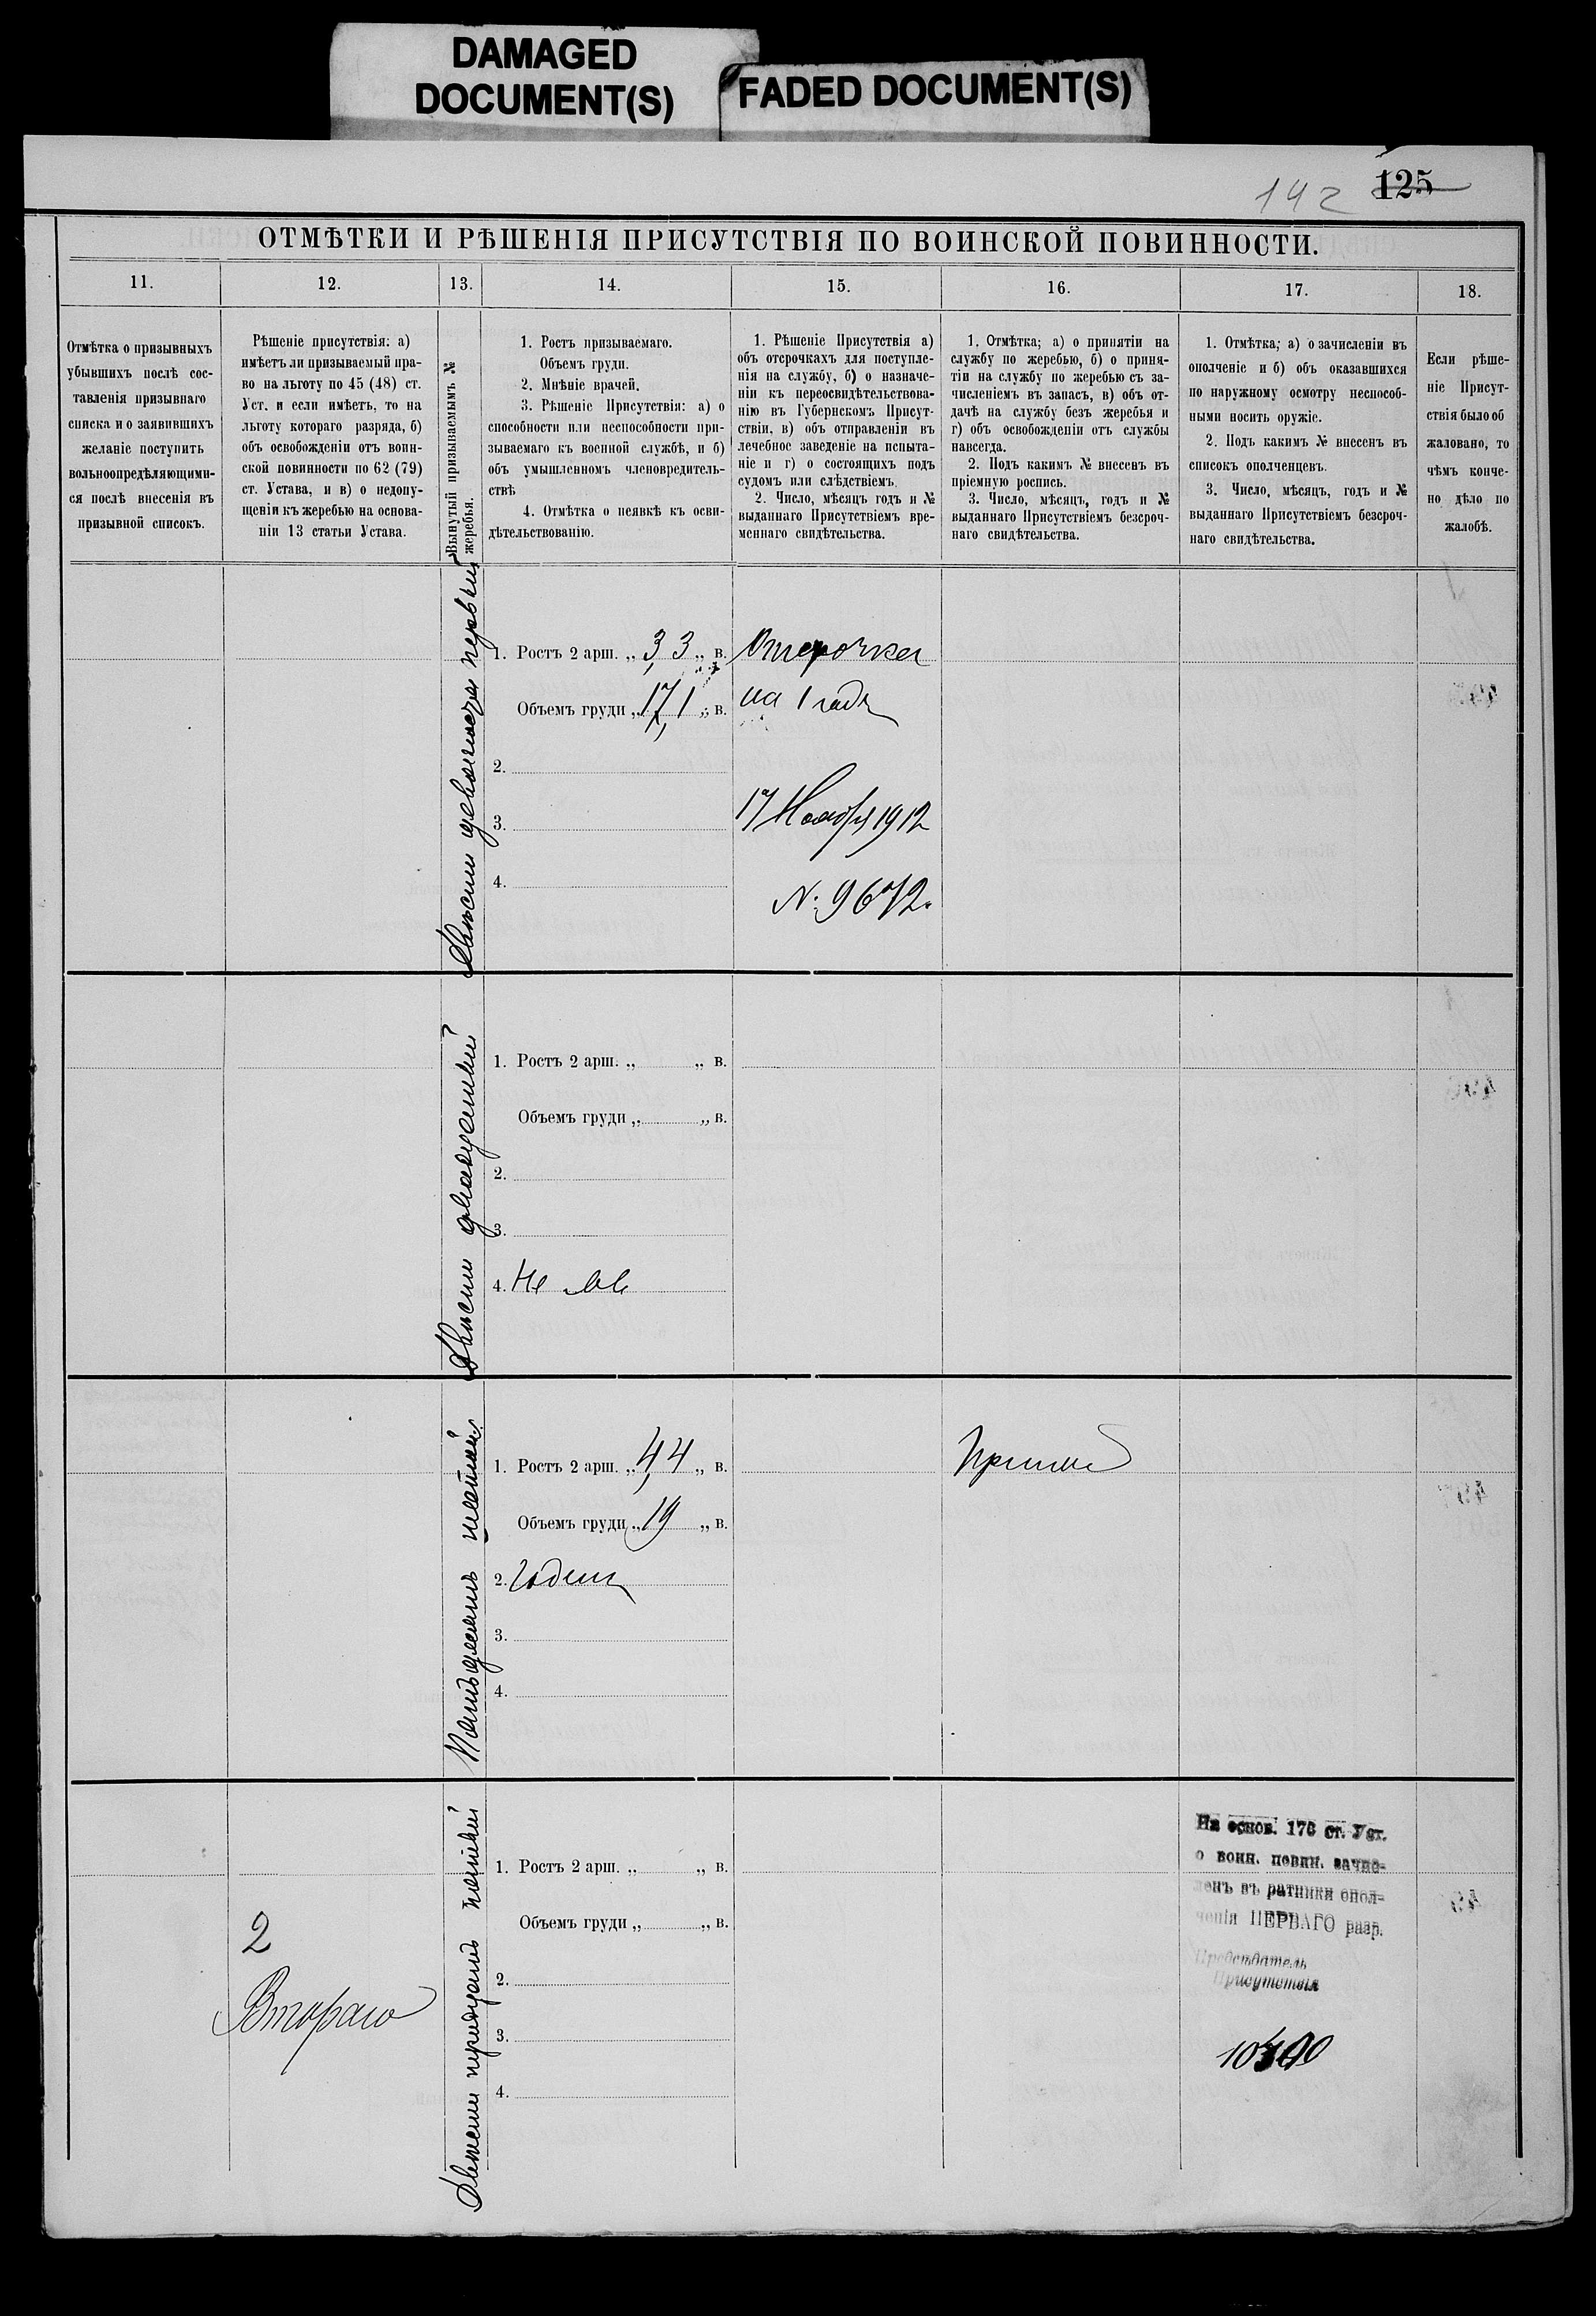 DAMAGED
DOCUMENT(S)
FADED DOCUMENT(S)
142 125
ОТМѢТКИ И РѢШЕНІЯ ПРИСУТСТВІЯ ПО ВОИНСКОЙ ПОВИННОСТИ.
11.
12.
13.
14.
15.
16.
17.
18.
Отмѣтка о призывныхъ
убывшихъ послѣ сос-
тавленія призывнаго
списка и о заявившихъ
желаніе поступить
вольноопредѣляющими-
ся послѣ внесенія въ
призывной списокъ.
Рѣшеніе присутствія: а)
имѣетъ ли призываемый пра-
во на льготу по 45 (48) ст.
Уст. и если имѣетъ, то на
льготу котораго разряда, б)
объ освобожденіи отъ воин-
ской повинности по 62 (79)
ст. Устава, и в) о недопу-
щеніи къ жеребью на основа-
ніи 13 статьи Устава.
Вынутый призываемымъ №
жеребья.
1. Ростъ призываемаго.
Объемъ груди.
2. Мнѣніе врачей.
3. Рѣшеніе Присутствія: а) о
способности или неспособности при-
зываемаго къ военной службѣ, и б)
объ умышленномъ членовредитель-
ствѣ
4. Отмѣтка о неявкѣ къ осви-
дѣтельствованію.
1. Рѣшеніе Присутствія а)
объ отсрочкахъ для поступле-
нія на службу, б) о назначе-
ніи къ переосвидѣтельствова-
нію въ Губернскомъ Присут-
ствіи, в) объ отправленіи въ
лечебное заведеніе на испыта-
ніе и г) о состоящихъ подъ
судомъ или слѣдствіемъ.
2. Число, мѣсяцъ годъ и №
выданнаго Присутствіемъ вре-
меннаго свидѣтельства.
1. Отмѣтка; а) о принятіи на
службу по жеребью, б) о приня-
тіи на службу по жеребью съ за-
численіемъ въ запасъ, в) объ от-
дачѣ на службу безъ жеребья и
г) объ освобожденіи отъ службы
навсегда.
2. Подъ какимъ № внесенъ въ
пріемную роспись.
3. Число, мѣсяцъ, годъ и №
выданнаго Присутствіемъ безсроч-
наго свидѣтельства.
1. Отмѣтка; а) о зачисленіи въ
ополченіе и б) объ оказавшихся
по наружному осмотру неспособ-
ными носить оружіе.
2. Подъ какимъ № внесенъ въ
списокъ ополченцевъ.
3. Число, мѣсяцъ, годъ и №
выданнаго Присутствіемъ безсроч-
наго свидѣтельства.
Если рѣше-
ніе Присут-
ствія было об
жаловано, то
чѣмъ конче-
но дѣло по
жалобѣ.
Двѣсти девяносто первый
1. Ростъ 2 арш. „ 3,3 „ в.
Объемъ груди „ 17,1 „ в.
2.
3.
4.
Отсрочка
на 1 годъ
17 Ноября 1912
№ 9672.
Двѣсти двадцатый
1. Ростъ 2 арш. „ „ в.
Объемъ груди „ „ в.
2.
3.
4. Не яв
Пятьдесятъ шестой
1. Ростъ 2 арш. „ 4,4 „ в.
Объемъ груди „ 19 „ в.
2. Годенъ
3.
4.
Принят
2
Втораго
1. Ростъ 2 арш. „ „ в.
Объемъ груди „ „ в.
2.
3.
4.
На основ. 176 ст. Уст.
о воин. повин. зачис-
ленъ въ ратники опол-
ченія ПЕРВАГО разр.
Предсѣдатель
Присутствія